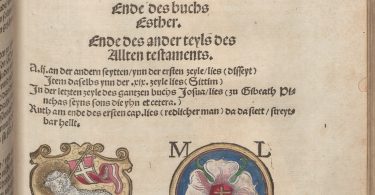 Ende des buchs
Esther.
Ende des ander teyls des
Allten testaments.
A.ij. an der andern seytten/ynn der ersten zeyle/lies (disseyt)
Item daselbs ynn der .xix. zeyle/lies (Sittim)
In der letzten zeyle des gantzen buchs Josua/lies (zu Gibeath Pi-
nehas seyns sons die yhn et cetera.)
Ruth am ende des ersten cap. lies (redlicher man) da da stett/streyt-
bar hellt.
M L